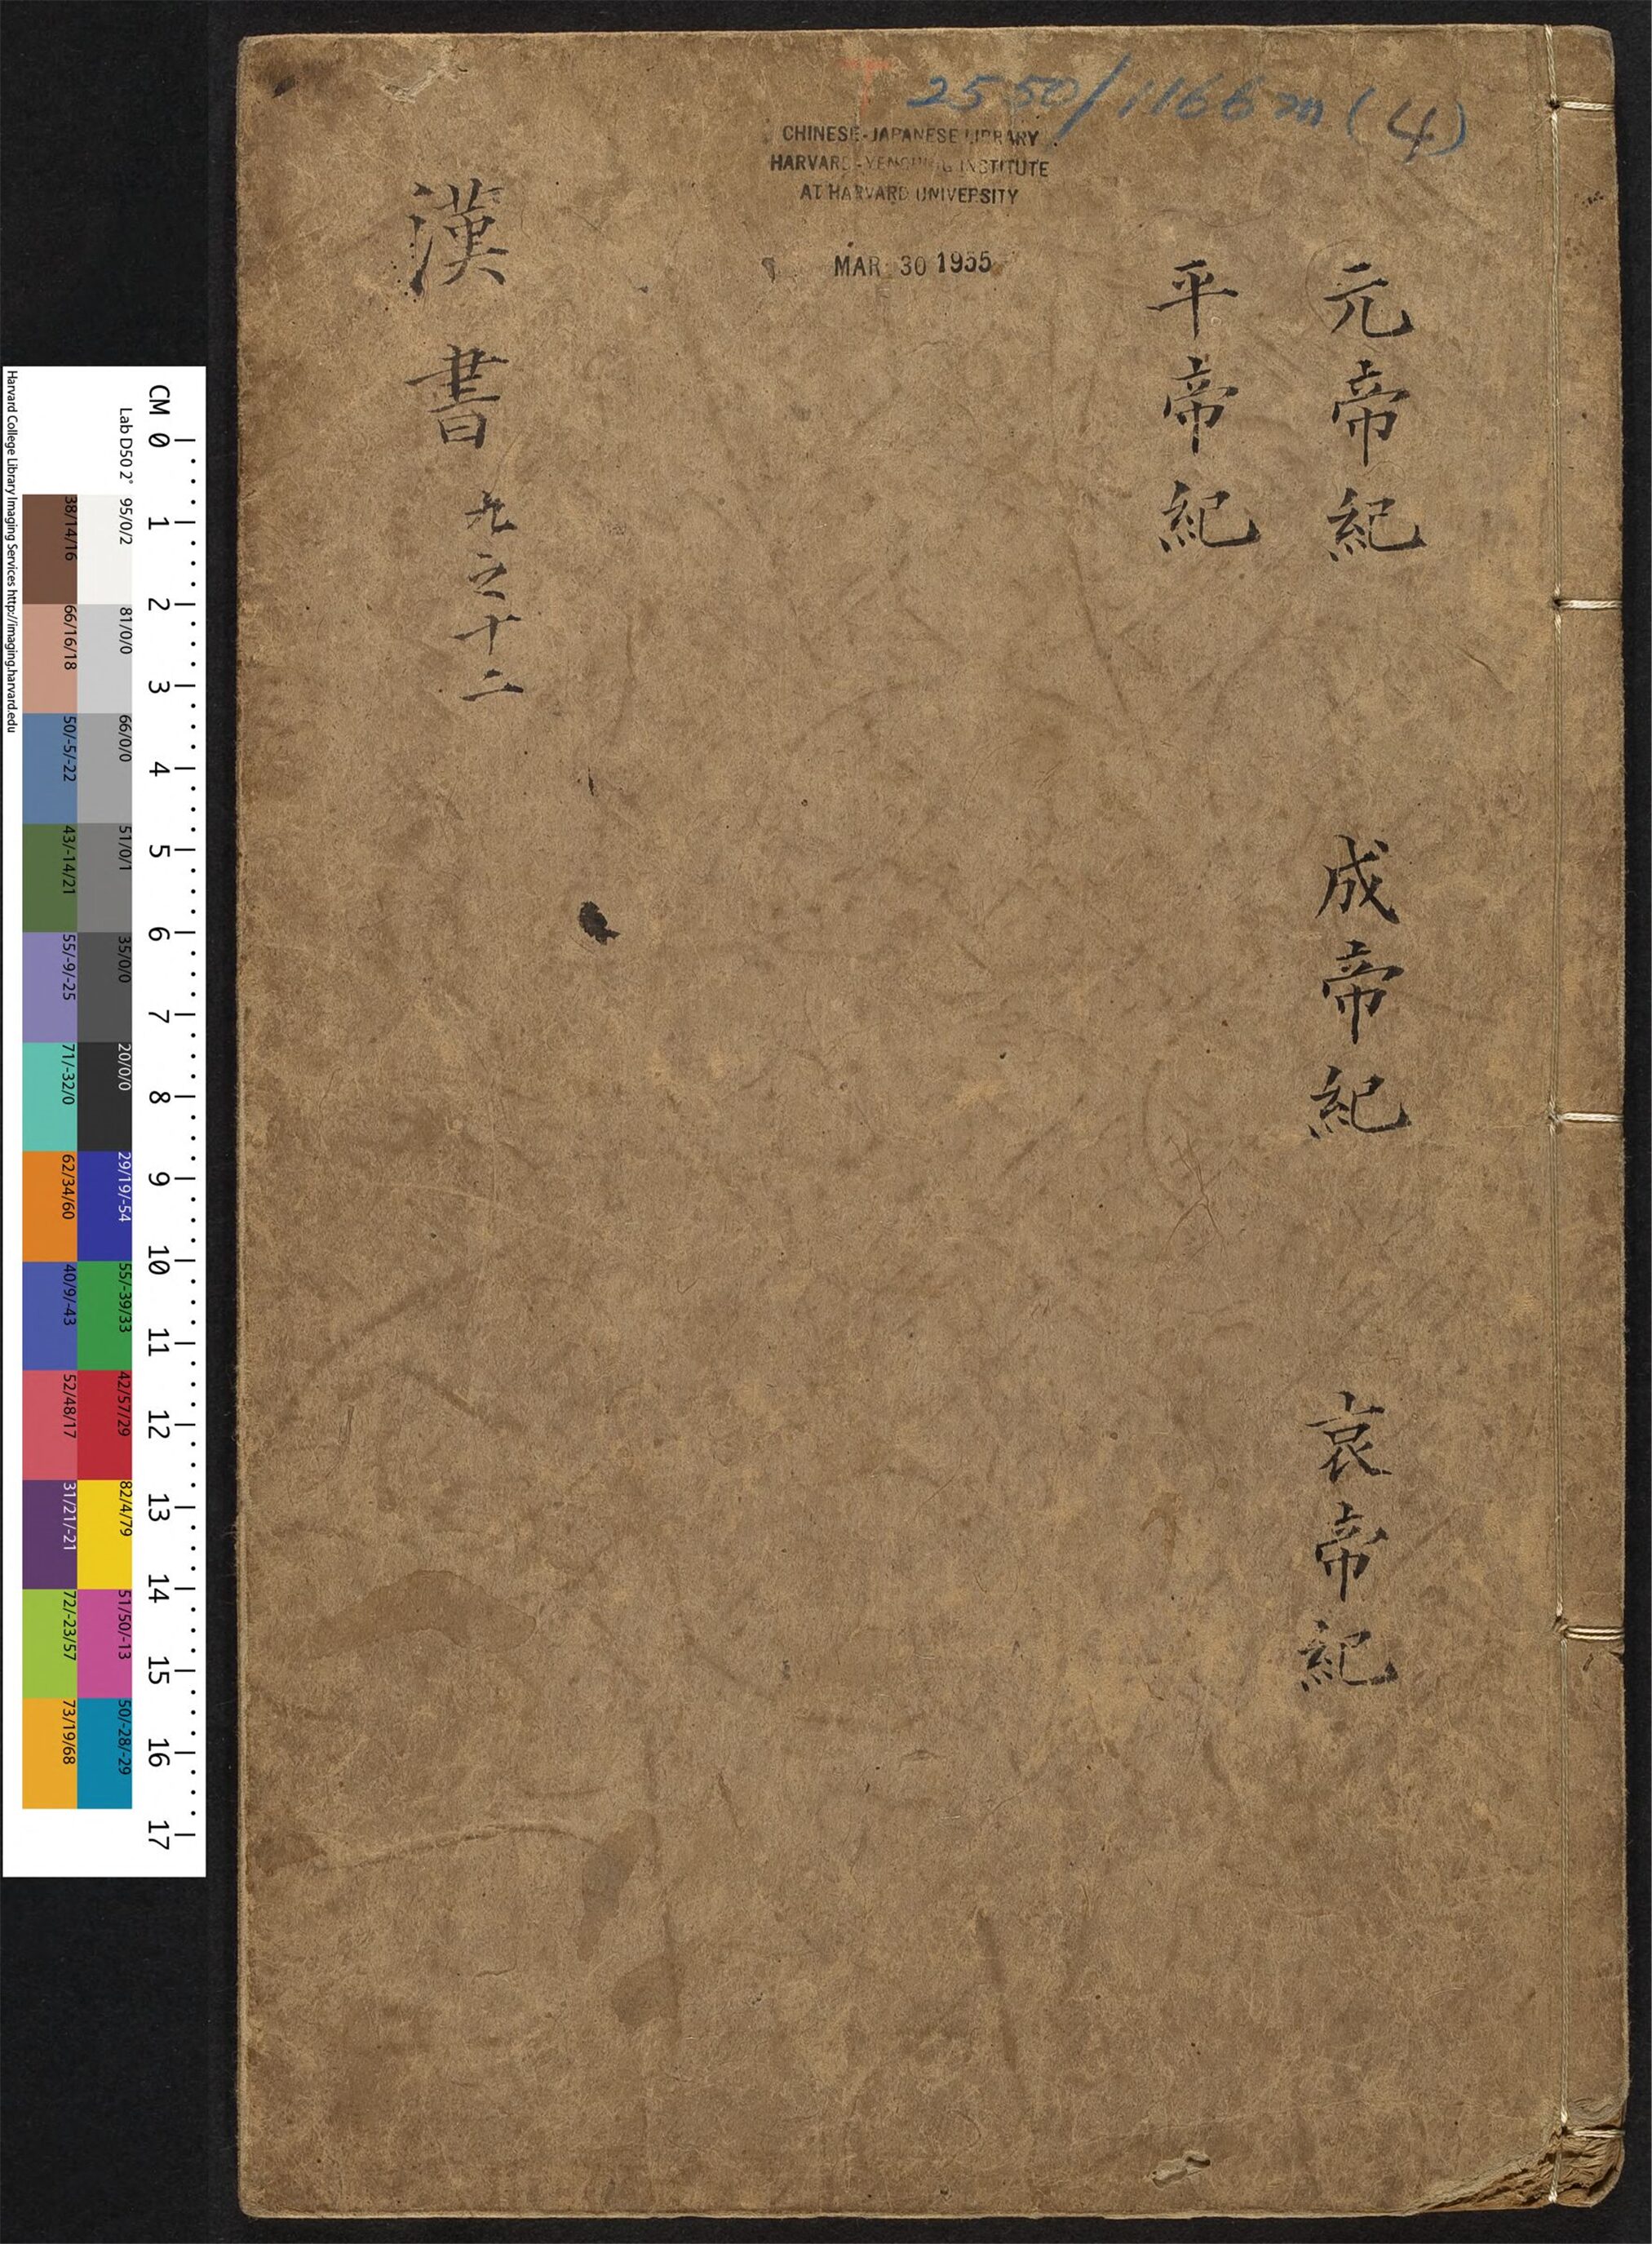 2550/1166m (4)
CHINESE-JAPANESE LIBRARY
HARVARD-YENCHING INSTITUTE
AT HARVARD UNIVERSITY
MAR 30 1955
元帝紀 成帝紀 哀帝紀
平帝紀
漢書 九之十二
CM 0 1 2 3 4 5 6 7 8 9 10 11 12 13 14 15 16 17
Lab D50 2° 95/0/2 81/0/0 66/0/0 51/0/1 35/0/0 20/0/0 29/19/-54 55/-39/33 42/57/29 82/4/79 51/50/-13 50/-28/-29
38/14/16 66/16/18 50/-5/-22 43/-14/21 55/-9/-25 71/-32/0 62/34/60 40/9/-43 52/48/17 31/21/-21 72/-23/57 73/19/68
Harvard College Library Imaging Services http://imaging.harvard.edu